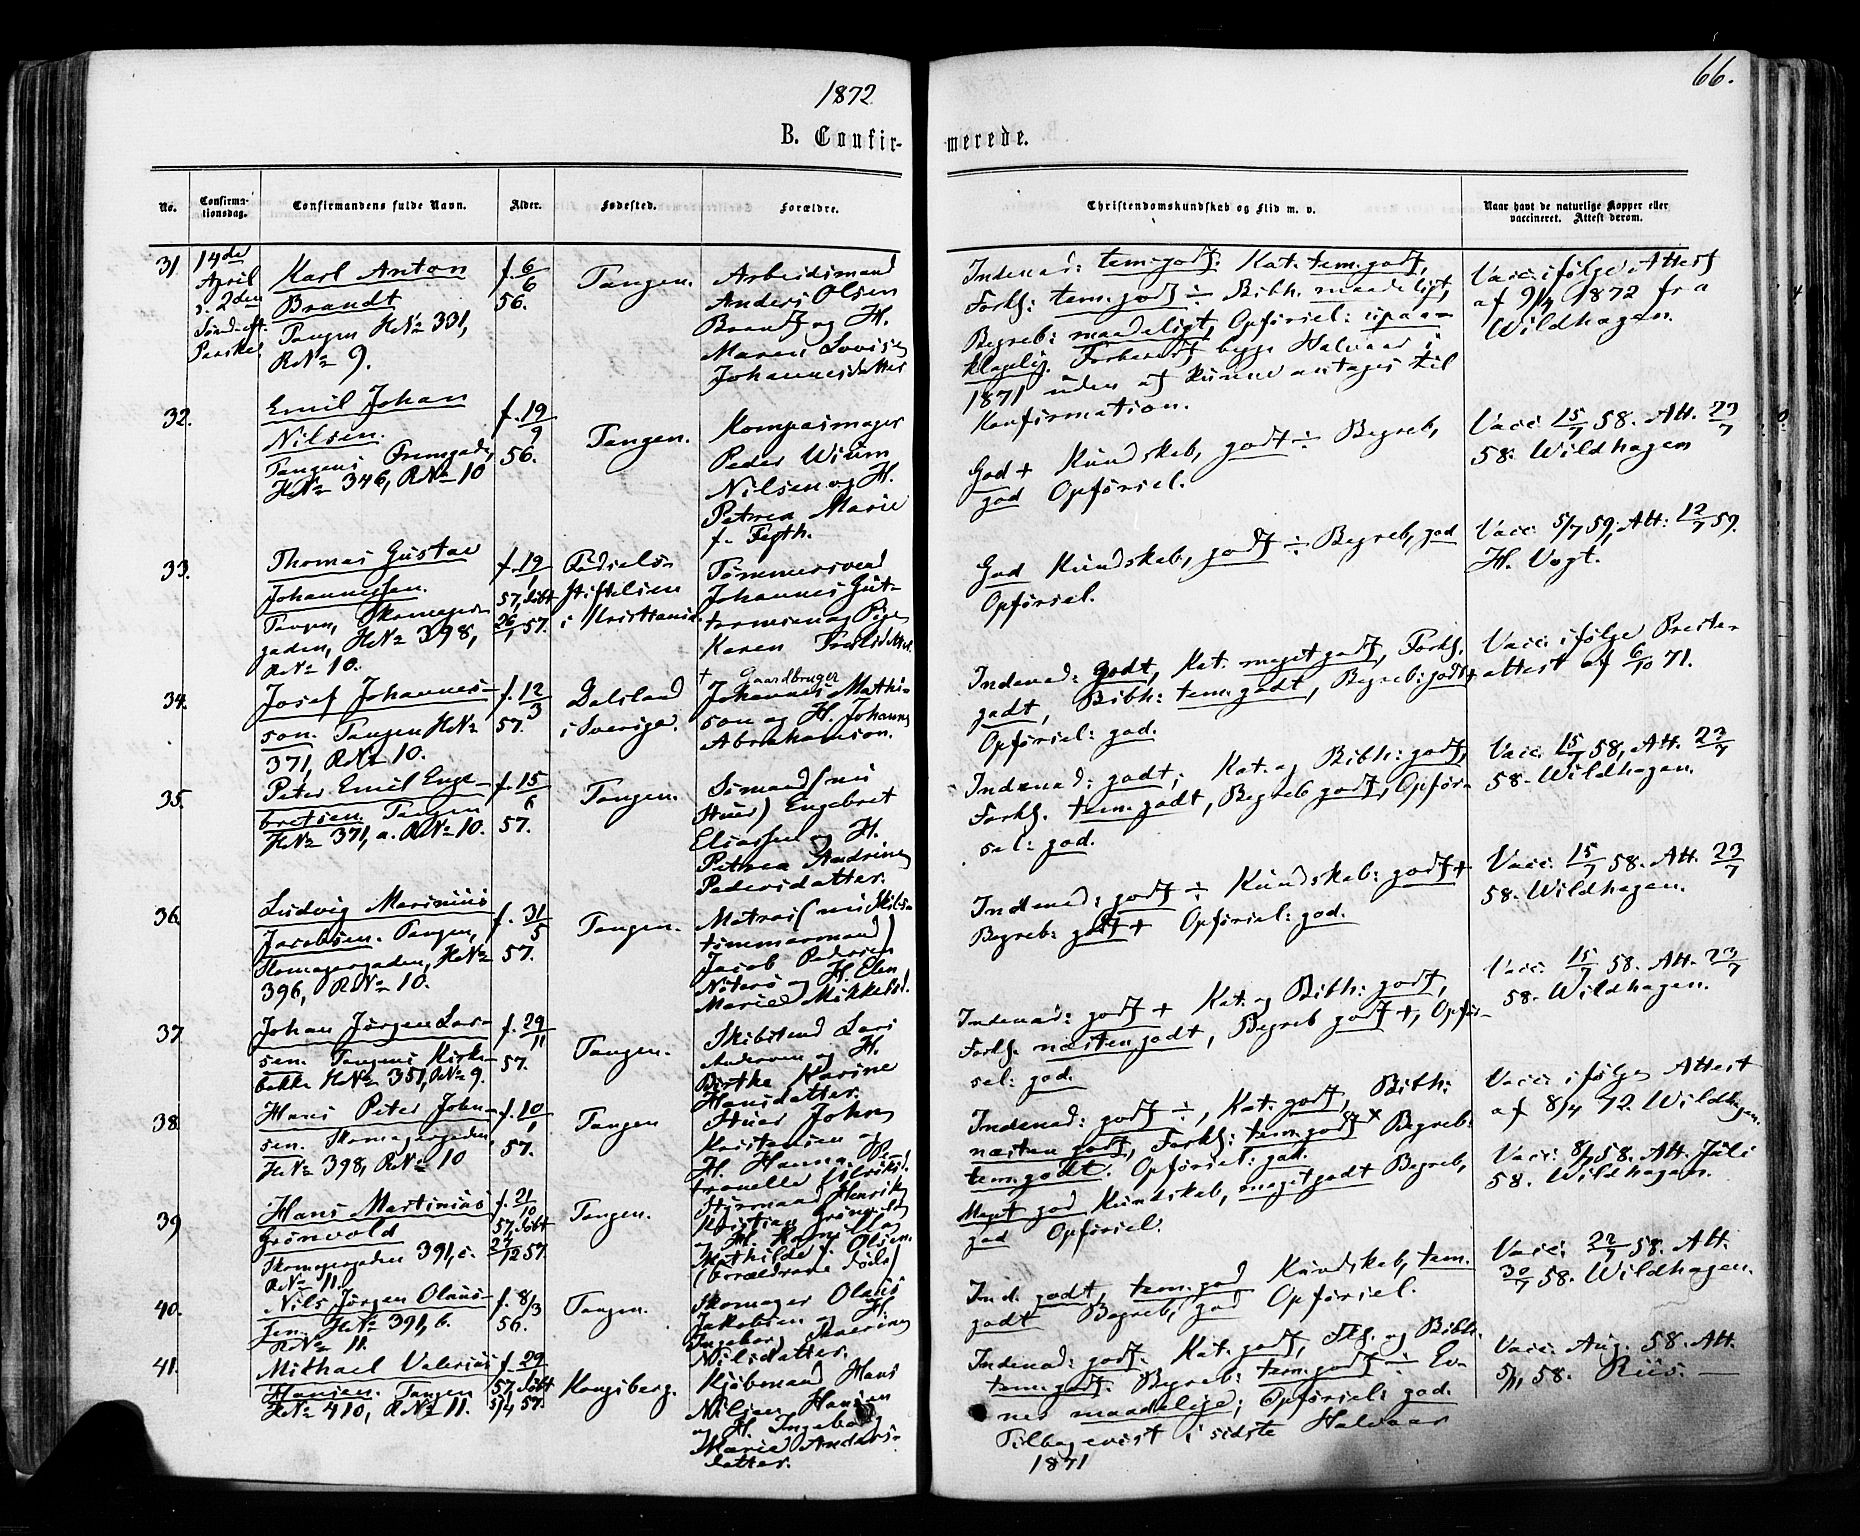 1872
66.
B. Confir-
merede.
No.
Confirma-
tionsdag.
Confirmandens fulde Navn.
Alder.
Fødested.
Forældre.
Christendomskundskab og Flid m. v.
Naar havt de naturlige Kopper eller
vaccineret. Attest derom.
31.
14de
April
s. 2den
Sønd. eft.
Paaske
Karl Anton
Brandt
Tangen HN° 331,
RN° 9.
f. 6/6
56.
Tangen.
Arbeidsmand
Anders Olsen
Brandt og H.
Maren Lovise
Johannesdatter
Indenad: tem. godt. Kat. tem. godt,
Forkl: tem. godt ÷ Bibh. maadeligt,
Begreb: maadeligt, Opførsel: upaa-
klagelig. Forberedt begge Halvaar i
1871 uden at kunne antages til
Konfirmation.
Vacc. ifølge Attest
af 9/4 1872 fra
Wildhagen.
32.
Emil Johan
Nilsen.
Tangens Øvregade,
HN° 346, RN° 10
f. 19/9
56.
Tangen.
Kompasmager
Peder Wium
Nilsen og H.
Petrea Marie
f. Fegth.
God + Kundskab, godt ÷ Begreb,
god Opførsel.
Vacc. 15/7 58. Att. 23/7
58. Wildhagen
33.
Thomas Gustav
Johannessen.
Tangen, Skomager-
gaden, HN° 398,
RN° 10.
f. 19/1
57, døbt
26/1 57.
Fødsels-
stiftelsen
i Kristiania.
Tømmersvend
Johannes Gut-
tormsen og Pige
Karen Trulsdatter.
God Kundskab, godt ÷ Begreb, god
Opførsel.
Vacc. 5/7 59, Att. 12/7 59.
H. Vogt.
34.
Josef Johannes-
son. Tangen HN°
371, RN° 10.
f. 12/3
57.
Dalsland
i Sverige.
+ Gaardbruger
Johannes Mathi-
son og H. Johanna
Abrahamson.
Indenad: godt, Kat. meget godt, Forkl.
godt, Bibh: tem. godt, Begreb: godt +
Opførsel: god.
Vacc. ifølge Preste-
attest af 6/10 71.
35.
Peter Emil Enge-
bretsen Tangen
HN° 371, a. RN° 10.
f. 15/6
57.
Tangen.
Sømand (nu
Stuer) Engebret
Eliassen og H.
Petrea Andrine
Pedersdatter.
Indenad: godt; Kat. og Bibh: godt,
Forkl. tem. godt, Begreb godt, Opfør-
sel: god.
Vacc. 15/7 58, Att. 23/7
58. Wildhagen.
36.
Ludvig Marinius
Jacobsen. Tangen,
Skomagergaden, HN°
396, RN° 10.
f. 31/5
57.
Tangen.
Matros (nu Skibs-
tømmermand)
Jacob Pedersen
Nøterø og H. Elen
Marie Mikkelsd.
Indenad: godt ÷ Kundskab: godt +
Begreb: godt + Opførsel: god.
Vacc. 15/7 58. Att. 23/7
58. Wildhagen.
37.
Johan Jørgen Lar-
sen. Tangens Kirke-
bakke HN° 351, RN° 9.
f. 29/11
57.
Tangen.
Skibstmd Lars
Andersen og H.
Birthe Karine
Hansdatter.
Indenad: godt + Kat. og Bibh: godt,
Forkl. næsten godt, Begreb godt +, Opfør-
sel: god.
Vacc. 15/7 58. Att. 23/7
58. Wildhagen.
38.
Hans Peter John-
sen. Skomagergaden,
HN° 398, RN° 10
f. 10/1
57.
Tangen
Stuer John
Kristensen og
H. Hanna Pe-
tronelle Ulriksd.
Indenad: godt ÷, Kat: godt, Bibh:
næsten godt, Forkl: tem. godt Begreb:
tem. godt. Opførsel: god.
Vacc. ifølge Attest
af 8/4 72. Wildhagen.
39.
Hans Martinius
Grønvold
Skomagergaden 391, c.
RN° 11.
f. 21/10
57, døbt
27/12 57.
Tangen.
Styrmand Henrik
Kristian Grønvold
og H.
Mathilde f. Olsen.
(Forældrene døde)
Meget god Kundskab, meget godt Begreb,
god Opførsel.
Vacc. 8/7 58. Att. Juli
58. Wildhagen.
40.
Nils Jørgen Olaus-
sen. HN° 391, b.
RN° 11.
f. 8/3
56.
Tangen.
Skomager Olaus
Jakobsen og H.
Ingeborg Severine
Nilsdatter.
Ind. godt, tem. god Kundskab, tem.
godt Begreb, god Opførsel.
Vacc. 22/7 58. Att.
30/7 58. Wildhagen.
41.
Mikhael Valerius
Hansen. Tangen
HN° 410, RN° 11.
f. 29
57, døbt
5/4 57.
Kongsberg.
Kjøbmand Hans
Nilsen Hansen
og H. Ingeborg
Marie Anders-
datter.
Indenad: godt. Kat. godt, Fkl. og Bibh.
tem. godt. Begreb: tem. godt ÷ Ev-
nes maadelige; Opførsel: god.
Tilbagevist i sidste Halvaar
1871
Vacc. Aug. 58. Att.
5/11 58. Riis. —